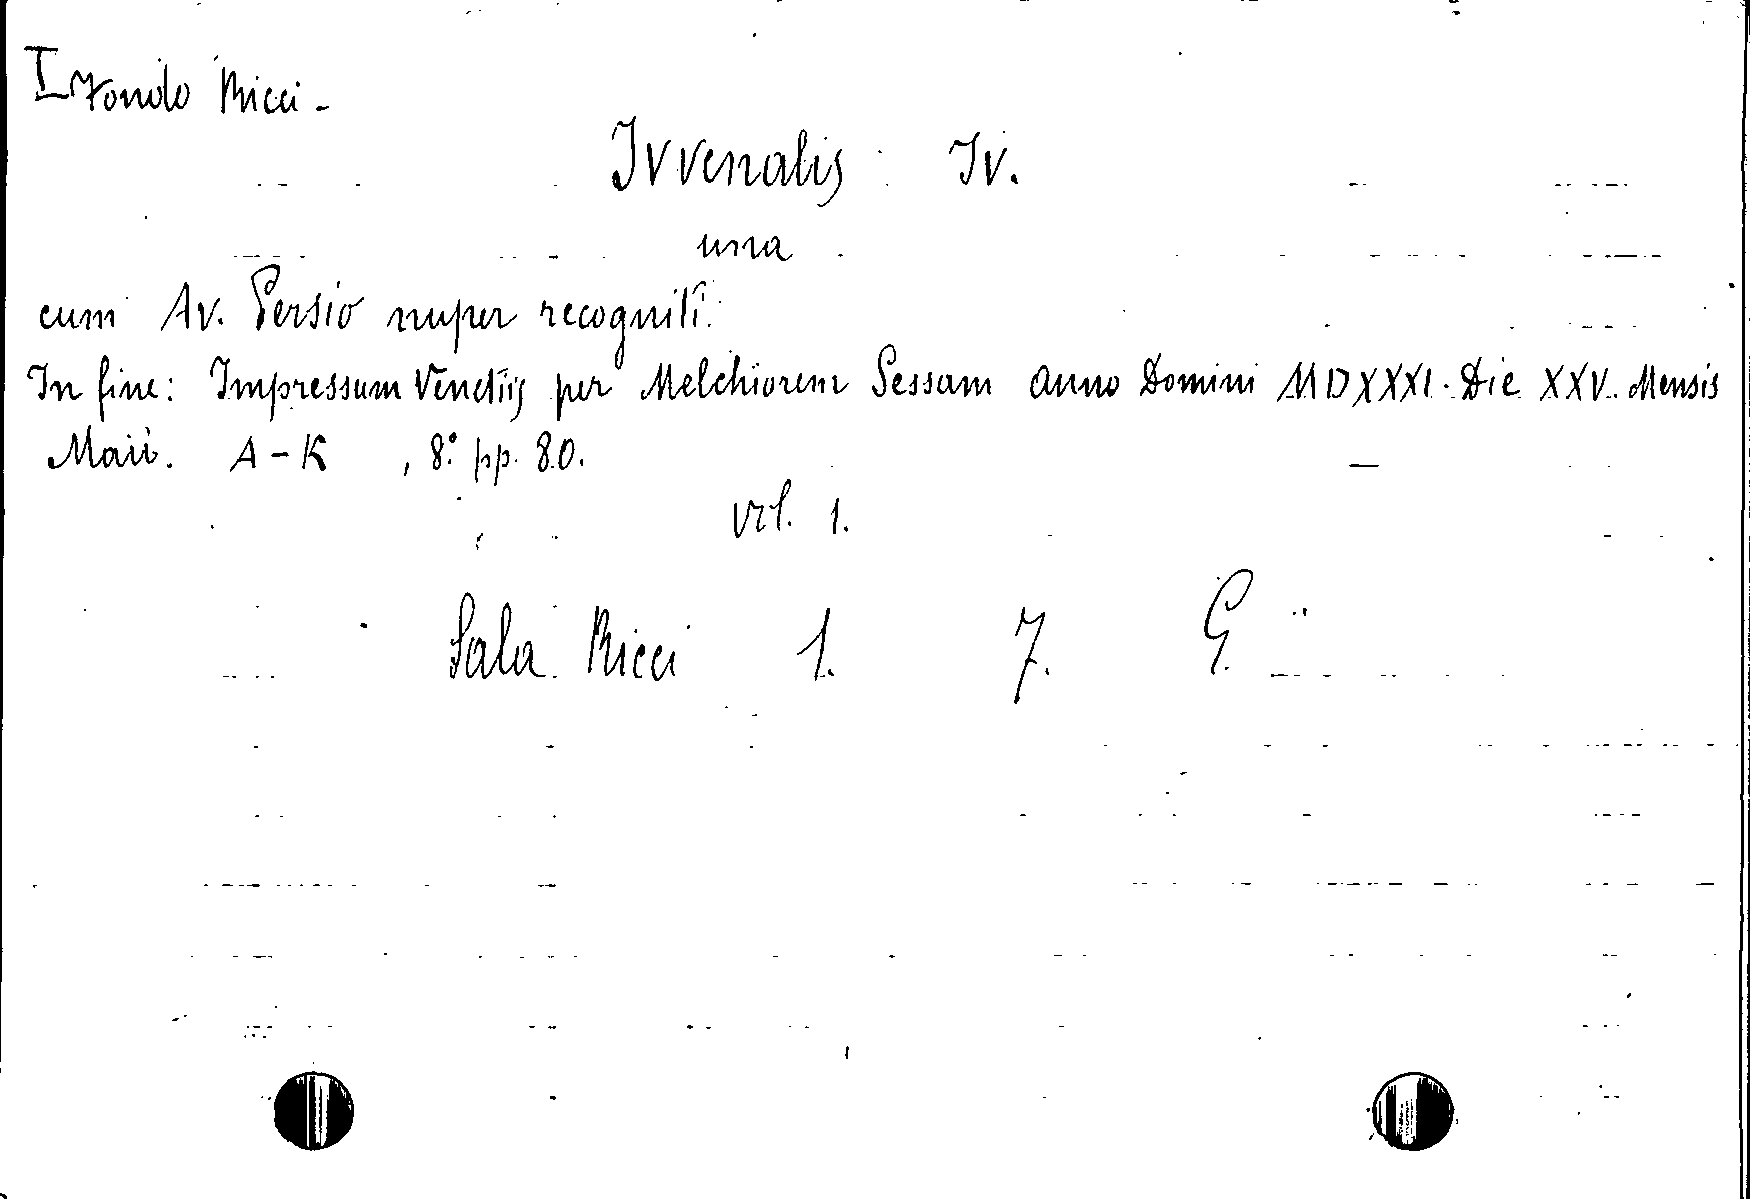 I Fondo Ricci -
Jvvenalis Jv.
una
cum Av. Persio nuper recogniti.
In fine: Impressum Venetiis per Melchiorem Sessam anno Domini MDXXXI. Die XXV. Mensis
Maii. A-K , 8° pp. 80.
vol. 1.
Sala Ricci 1. 7. G.